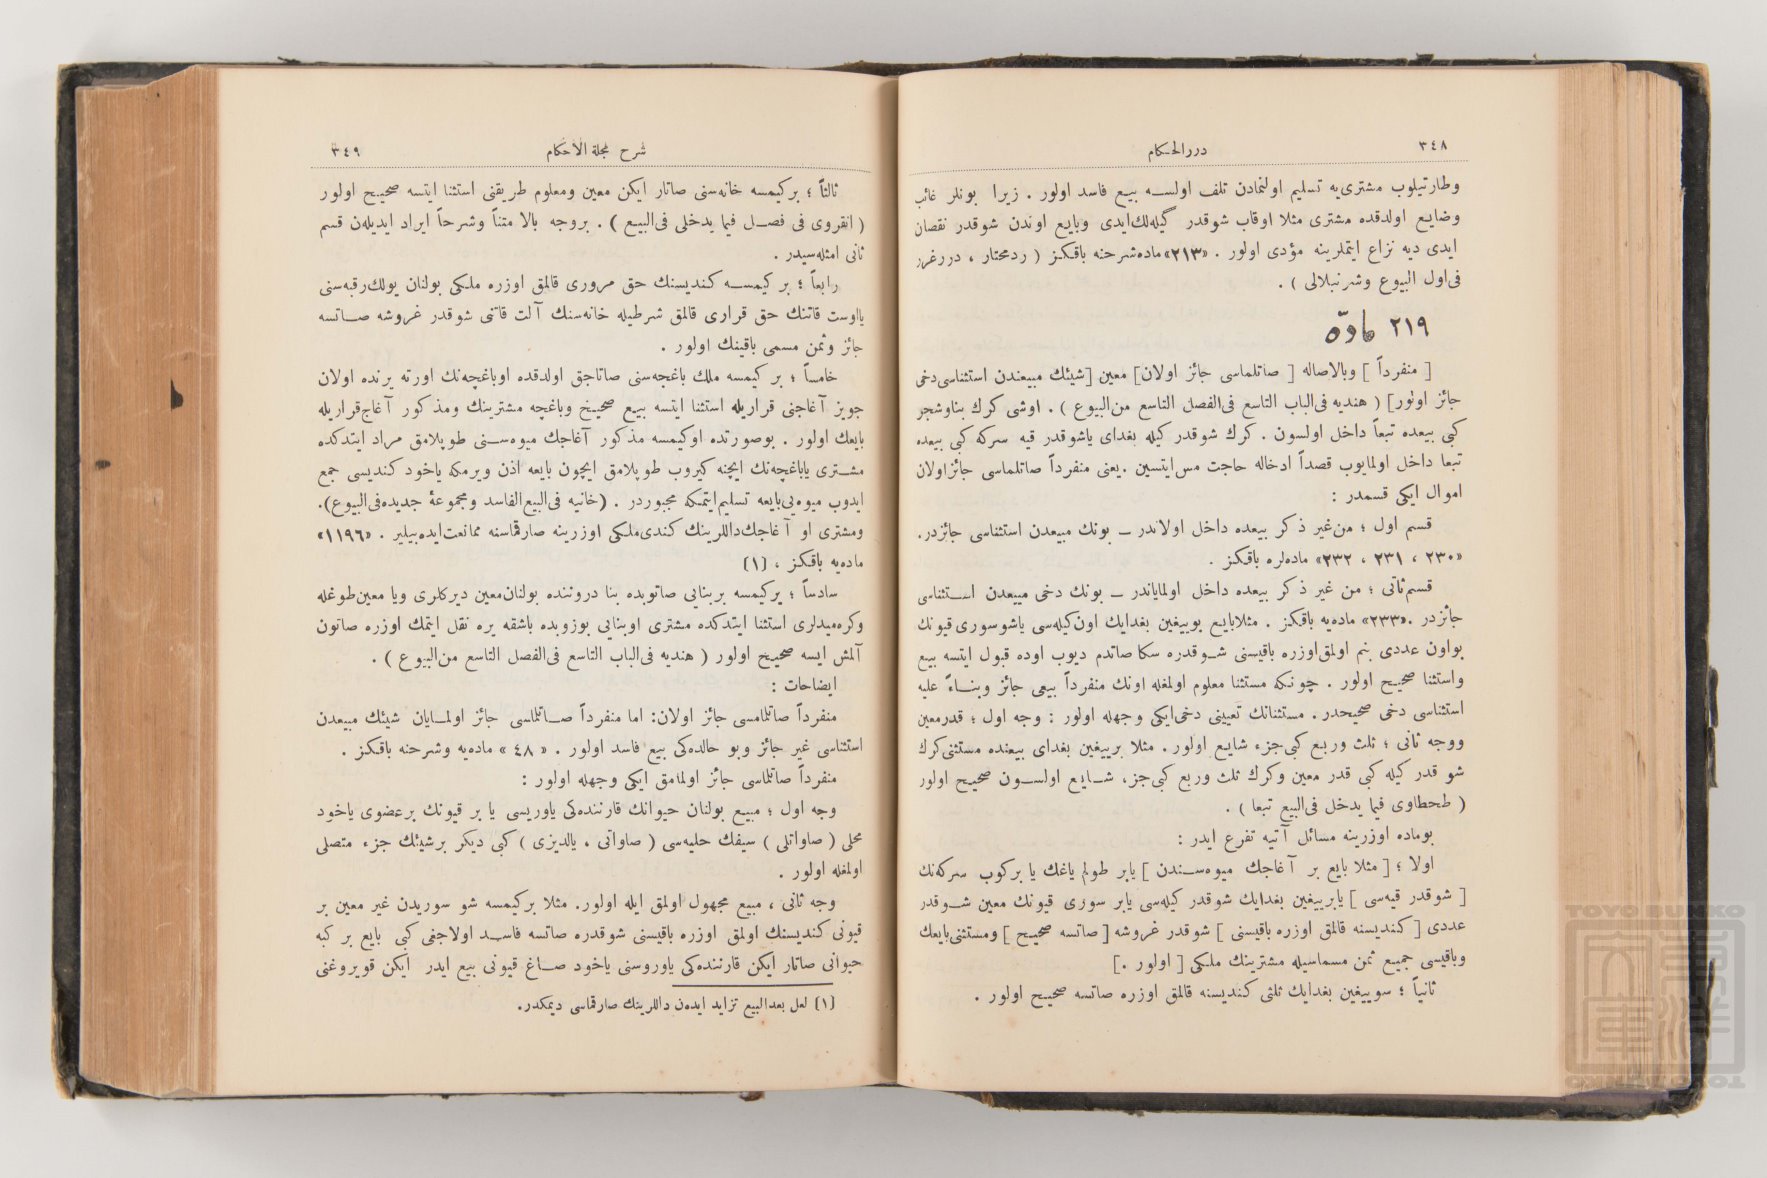 ٣٤٨
دررالحكام
وطارتيلوب مشترىيه تسليم اولنمادن تلف اولسه بيع فاسد اولور . زيرا بونلر غائب
وضايع اولدقده مشترى مثلا اوقاب شوقدر كيله‌لك‌ايدى وبايع اوندن شوقدر نقصان
ايدى ديه نزاع ايتملرينه مؤدى اولور . «٢١٣» ماده شرحنه باقكز ( ردمحتار ، دررغرر
فى‌اول البيوع وشرنبلالى ) .
٢١٩ ماده
[ منفرداً ] وبالاصاله [ صاتلماسى جائز اولان] معين [شيئك مبيعدن استثناسى دخى
جائز اولور] ( هنديه فى‌الباب التاسع فى‌الفصل التاسع من‌البيوع ) . اوشى كرك بناوشجر
كبى بيعده تبعاً داخل اولسون . كرك شوقدر كيله بغداى ياشوقدر قيه سركه كبى بيعده
تبعا داخل اولمايوب قصداً ادخاله حاجت مس‌ايتسين .يعنى منفرداً صاتلماسى جائزاولان
اموال ايكى قسمدر :
قسم اول ؛ من‌غير ذكر بيعده داخل اولاندر ــ بونك مبيعدن استثناسى جائزدر.
«٢٣٠ ، ٢٣١ ، ٢٣٢» ماده‌لره باقكز .
قسم‌ثانى ؛ من غير ذكر بيعده داخل اولماياندر ــ بونك دخى مبيعدن استثناسى
جائزدر .«٢٣٣» ماده‌يه باقكز . مثلابايع بوييغين بغدايك اون‌كيله‌سى ياشوسورى قيونك
بواون عددى بنم اولمق‌اوزره باقيسنى شوقدره سكا صاتدم ديوب اوده قبول ايتسه بيع
واستثنا صحيح اولور . چونكه مستثنا معلوم اولمغله اونك منفرداً بيعى جائز وبناءً عليه
استثناسى دخى صحيحدر . مستثنانك تعيينى دخى‌ايكى وجهله اولور : وجه اول ؛ قدرمعين
ووجه ثانى ؛ ثلث وربع كبى‌جزء شايع اولور . مثلا برييغين بغداى بيعنده مستثنى‌كرك
شو قدر كيله كبى قدر معين وكرك ثلث وربع كبى‌جزء شايع اولسون صحيح اولور
( طحطاوى فيما يدخل فى‌البيع تبعا ) .
بوماده اوزرينه مسائل آتيه تفرع ايدر :
اولا ؛ [ مثلا بايع بر آغاجك ميوه‌سندن ] يابر طولم ياغك يا بركوب سركه‌نك
[ شوقدر قيه‌سى ] يابرييغين بغدايك شوقدر كيله‌سى يابر سورى قيونك معين شوقدر
عددى [ كنديسنه قالمق اوزره باقيسنى ] شوقدر غروشه [ صاتسه صحيح ] ومستثنى‌بايعك
وباقيسى جميع ثمن مسماسيله مشترينك ملكى [ اولور .]
ثانياً ؛ سوييغين بغدايك ثلثى كنديسنه قالمق اوزره صاتسه صحيح اولور .
شرح مجلة الاحكام
٣٤٩
ثالثاً ؛ بركيمسه خانه‌سنى صاتار ايكن معين ومعلوم طريقنى استثنا ايتسه صحيح اولور
( انقروى فى فصل فيما يدخلى فى‌البيع ) . بروجه بالا متناً وشرحاً ايراد ايديلەن قسم
ثانى امثله‌سيدر .
رابعاً ؛ بر كيمسه كنديسنك حق مرورى قالمق اوزره ملكى بولنان يولك‌رقبه‌سنى
يااوست قاتنك حق قرارى قالمق شرطيله خانه‌سنك آلت قاتنى شوقدر غروشه صاتسه
جائز وثمن مسمى باقينك اولور .
خامساً ؛ بر كيمسه ملك باغچه‌سنى صاتاجق اولدقده اوباغچه‌نك اورته يرنده اولان
جويز آغاجنى قراريله استثنا ايتسه بيع صحيح وباغچه مشترينك ومذكور آغاج‌قراريله
بايعك اولور . بوصورتده اوكيمسه مذكور آغاجك ميوه‌سنى طوپلامق مراد ايتدكده
مشترى ياباغچه‌نك ايچنه كيروب طوپلامق ايچون بايعه اذن ويرمكه ياخود كنديسى جمع
ايدوب ميوه‌يى‌بايعه تسليم‌ايتمكه مجبوردر . (خانيه فى‌البيع‌الفاسد ومجموعۀ جديده‌فى‌البيوع).
ومشترى او آغاجك‌داللرينك كندى‌ملكى اوزرينه صارقماسنه ممانعت‌ايده‌بيلير . «١١٩٦»
ماده‌يه باقكز ، (١)
سادساً ؛ بركيمسه بربنايى صاتوبده بنا دروننده بولنان‌معين ديركلرى ويا معين‌طوغله
وكره‌ميدلرى استثنا ايتدكده مشترى اوبنايى بوزوبده باشقه يره نقل ايتمك اوزره صاتون
آلمش ايسه صحيح اولور ( هنديه فى‌الباب التاسع فى‌الفصل التاسع من‌البيوع ) .
ايضاحات :
منفرداً صاتلمامسى جائز اولان: اما منفرداً صاتلماسى جائز اولمايان شيئك مبيعدن
استثناسى غير جائز وبو حالده‌كى بيع فاسد اولور . « ٤٨ » ماده‌يه وشرحنه باقكز .
منفرداً صاتلماسى جائز اولمامق ايكى وجهله اولور :
وجه اول ؛ مبيع بولنان حيوانك قارننده‌كى ياوريسى يا بر قيونك برعضوى ياخود
محلى ( صاواتلى ) سيفك حليه‌سى ( صاواتى ، يالديزى ) كبى ديكر برشيئك جزء متصلى
اولمغله اولور .
وجه ثانى ، مبيع مجهول اولمق ايله اولور. مثلا بركيمسه شو سوريدن غير معين بر
قيونى كنديسنك اولمق اوزره باقيسنى شوقدره صاتسه فاسد اولاجغى كبى بايع بر كبه
حيوانى صاتار ايكن قارننده‌كى ياوروسنى ياخود صاغ قيونى بيع ايدر ايكن قويروغنى
(١) لعل بعدالبيع تزايد ايدەن داللرينك صارقماسى ديمكدر.
TOYO BUNKO
東洋文庫
TOYO BUNKO